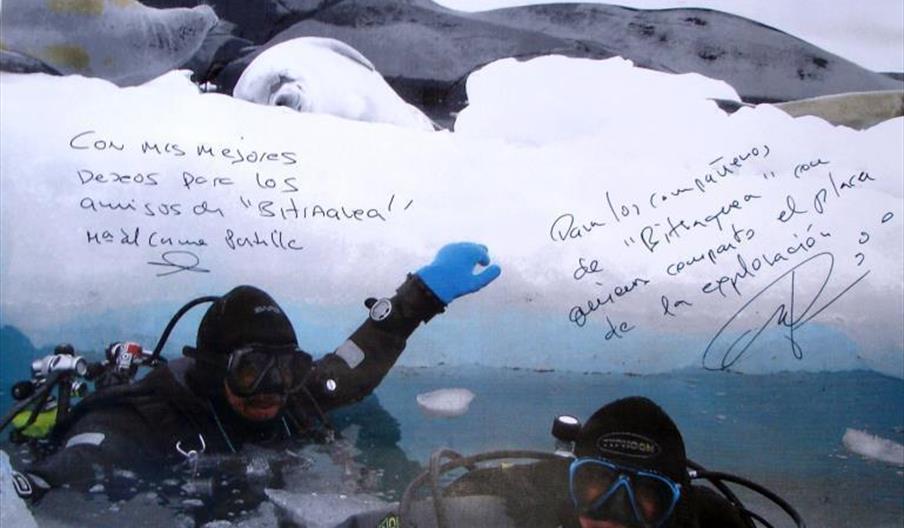 Con mis mejores
Deseos para los
amigos de "Bitraquea"
Mª del Carmen Portilla
Para los compañeros
de "Bitraquea" con
quienes comparto el placer
de la exploración
TYPHOON